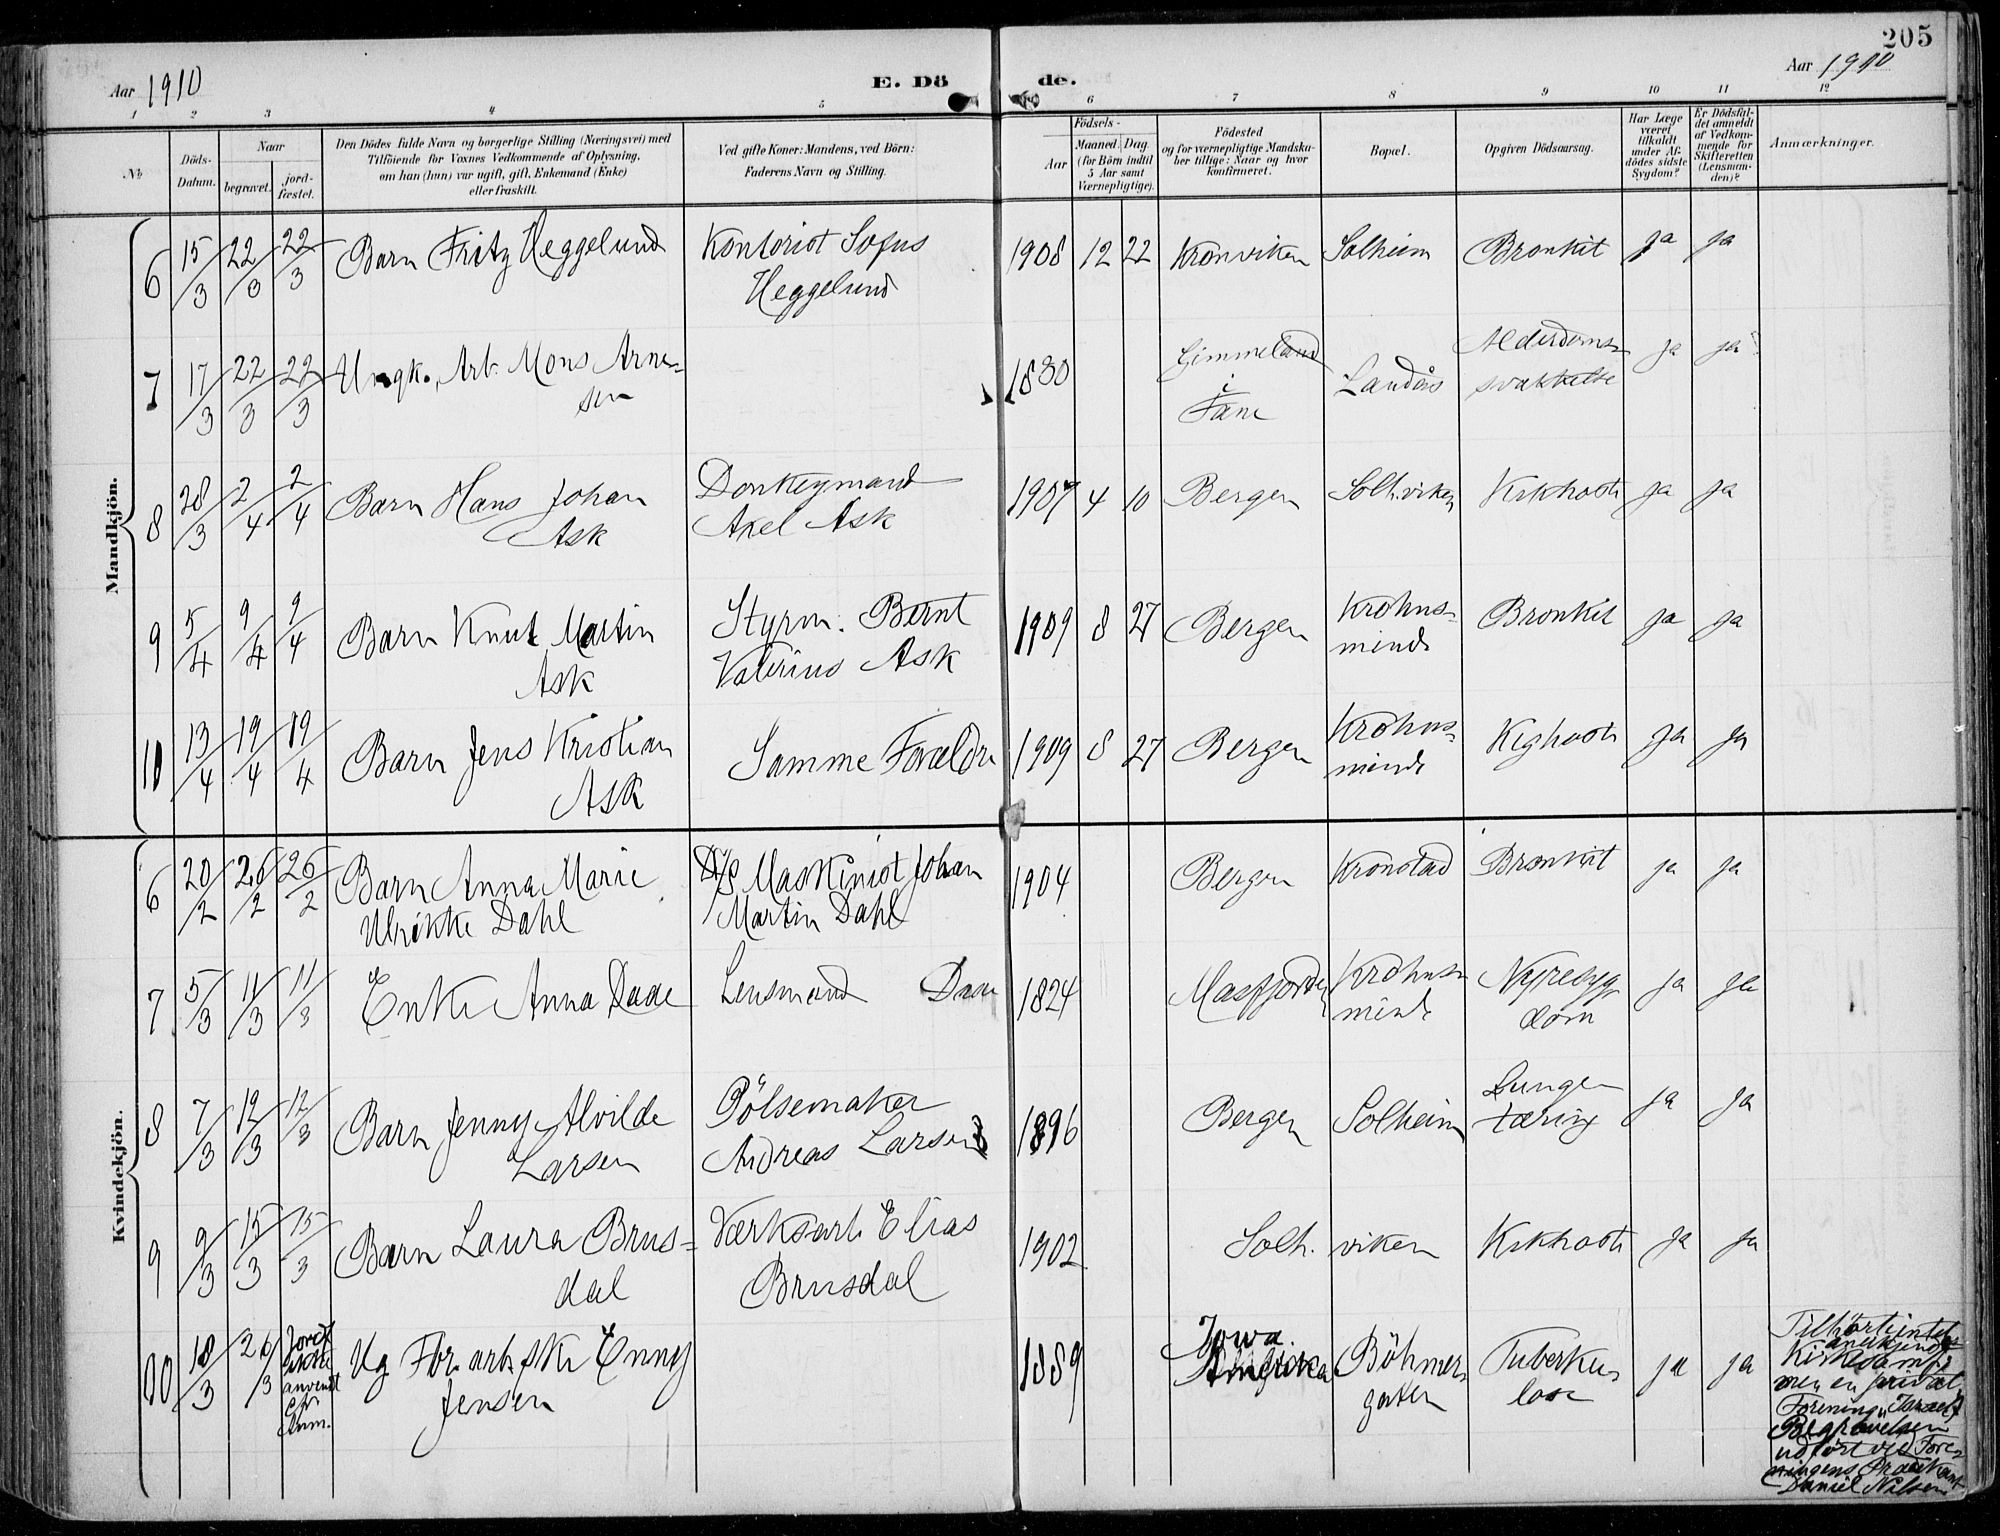 205
Aar 1910
E. Dö
de.
Aar 1910
1 2 3 4 5 6 7 8 9 10 11 12
No
Döds-
Datum.
Naar
begravet.
jord-
fæstet.
Den Dödes fulde Navn og borgerlige Stilling (Næringsvei) med
Tilföiende for Voxnes Vedkommende af Oplysning,
om han (hun) var ugift, gift, Enkemand (Enke)
eller fraskilt.
Ved gifte Koner: Mandens, ved Börn:
Faderens Navn og Stilling.
Födsels-
Aar
Maaned
Dag
(for Börn indtil
5 Aar samt
Værnepligtige).
Födested
og for værnepligtige Mandska-
ber tillige: Naar og hvor
konfirmeret.
Bopæl.
Opgiven Dödsaarsag.
Har Læge
været
tilkaldt
under Af-
dödes sidste
Sygdom?
Er Dödsfal-
det anmeldt
af Vedkom-
mende for
Skifteretten
(Lensman-
den)?
Anmærkninger.
Mandkjön.
6 15/3 22/3 22/3 Barn Fritz Heggelund Kontorist Sofus 1908 12 22 Kronviken Solheim Bronkit ja ja
Heggelund
7 17/3 22/3 22/3 Ungk. Arb. Mons Arne- 1830 Gimmeland Landås Alderdoms- ja ja
sen i svakkelse
Fane
8 28/3 2/4 2/4 Barn Hans Johan Donkeymand 1907 4 10 Bergen Solh.viken Kikhoste ja ja
Ask Axel Ask
9 5/4 9/4 9/4 Barn Knut Martin Styrm. Bernt 1909 8 27 Bergen Krohns- Bronkit ja ja
Ask Valerius Ask minde
10 13/4 19/4 19/4 Barn Jens Kristian Samme Forældre 1909 8 27 Bergen Krohns- Kighoste ja ja
Ask minde
Kvindekjön.
6 20/2 26/2 26/2 Barn Anna Marie D/S Maskinist Johan 1904 Bergen Kronstad Bronkit ja ja
Ulrikke Dahl Martin Dahl
7 5/3 11/3 11/3 Enke Anna Daae Lensmand Daae 1824 Masfjorden Krohns- Nyresyg- ja ja
minde dom
8 7/3 12/3 12/3 Barn Jenny Alvilde Pölsemaker 1896 Bergen Solheim Lunge- ja ja
Larsen Andreas Larsen tæring
9 9/3 15/3 15/3 Barn Laura Brus- Værksarb. Elias 1902 Solh. viken Kikhoste ja ja
dal Brusdal
10 18/3 26/3 Jordf. ikke anvendt cfr. Anm. Ug For. arbfske Enny 1889 Iowa. Böhmer- Tuberku- ja ja
Jensen Amerika gaten lose
Tilhörte intet
anerkjendt
Kirkesamf.
men en privat
Forening "Israel"
Begravelsen
udfört ved Fore-
ningens Prædikant
Daniel Nilsen